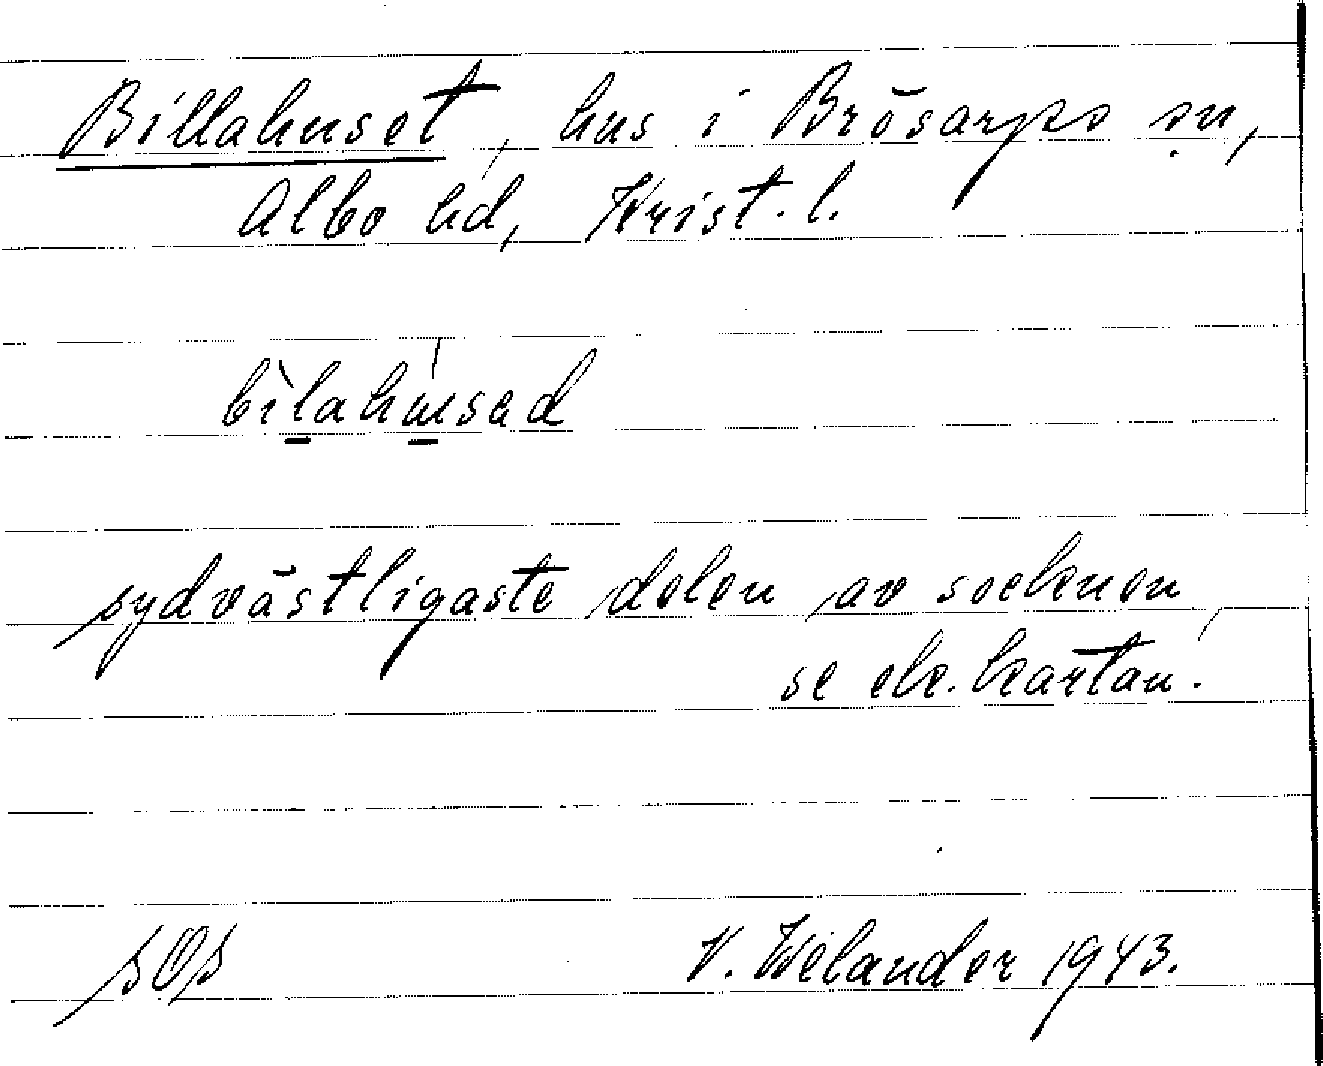 Billahuset, hus i Brösarps sn,
Albo hd, Krist. l.
bìlahúsad
sydvästligaste delen av socknen,
se ek. kartan.
sOs
V. Welander 1943.